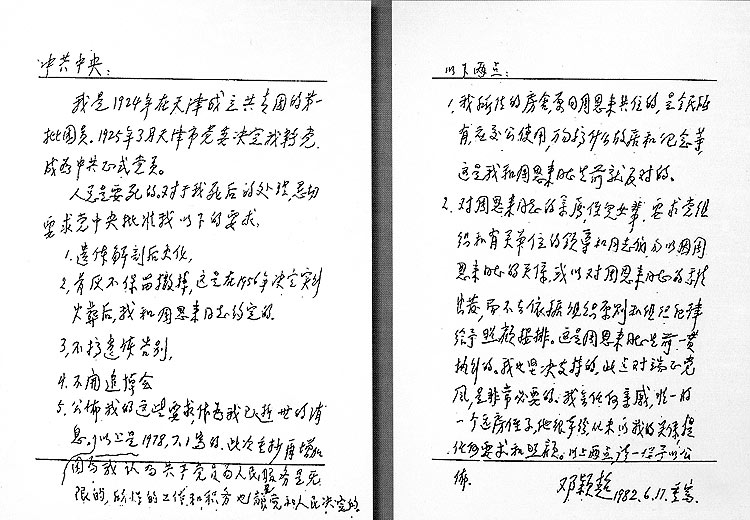 中共中央：
我是1924年在天津成立共青团的第一
批团员。1925年3月天津市党委决定我转党，
成为中共正式党员。
人总是要死的。对于我死后的处理，恳切
要求党中央批准我以下的要求：
1.遗体解剖后火化。
2.骨灰不保留，撒掉，这是在1956年决定实行
火葬后，我和周恩来同志约定的。
3.不搞遗体告别。
4.不开追悼会
5.公布我的这些要求，作为我已逝世的消
息。以上是1978.7.1写的。此次重抄再增加
因为我认为共产党员为人民服务是无
限的，所作的工作和职务也都是党和人民决定的
以下两点：
1.我所住的房舍，原同周恩来共住的，是全民所
有，应交公使用，万勿搞什么故居和纪念等，
这是我和周恩来同志生前就反对的。
2.对周恩来同志的亲属，侄儿女辈，要求党组
织和有关单位的领导和同志们，勿以因周
恩来同志的关系，或以对周恩来同志的感情
出发，而不去依据组织原则和组织纪律
给予照顾安排。这是周恩来同志生前一贯
执行的。我也坚决支持的。此点对端正党
风，是非常必要的。我无任何亲戚，唯一的
一个远房侄子，他很本份，从未以我的关系提
任何要求和照顾。以上两点请一并予以公
布。
邓颖超
1982.6.17.重写.